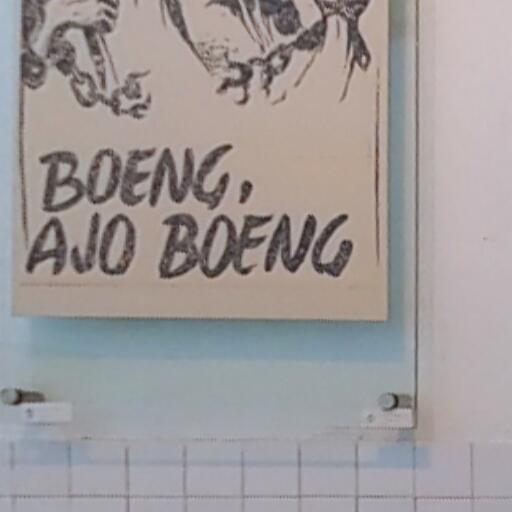 BOENG,
AJO BOENG